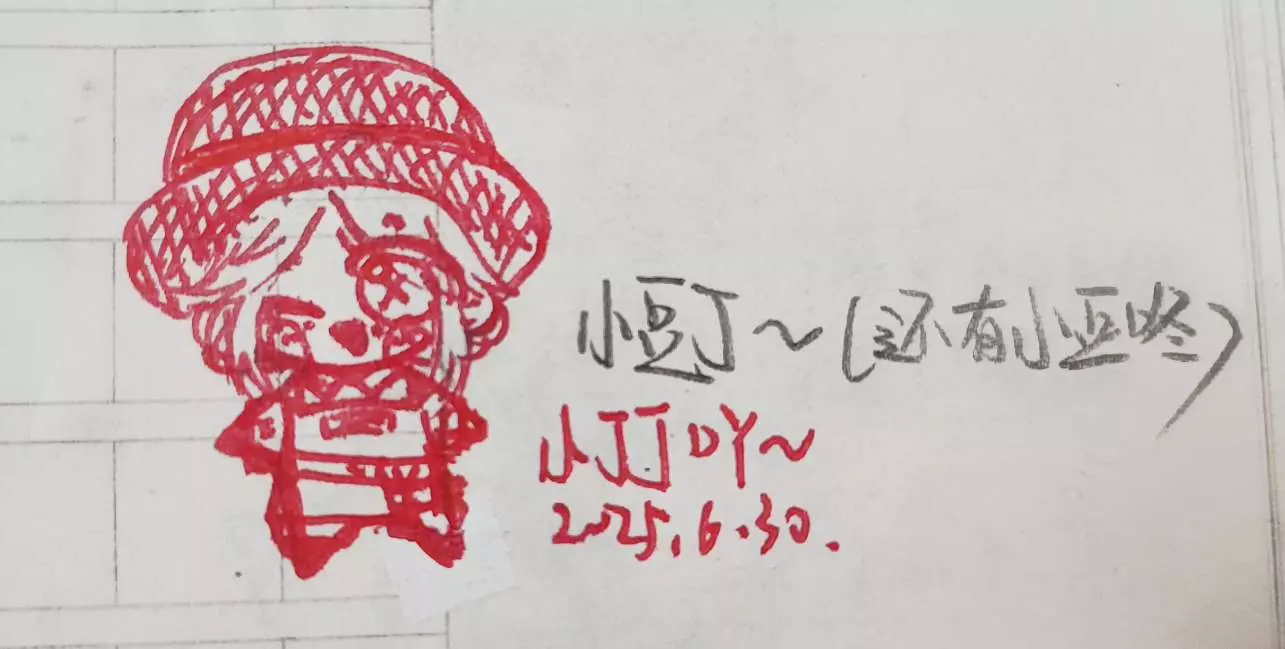 小豆丁～(还有小亚咚)
小丁丁吖～
2025.6.30.